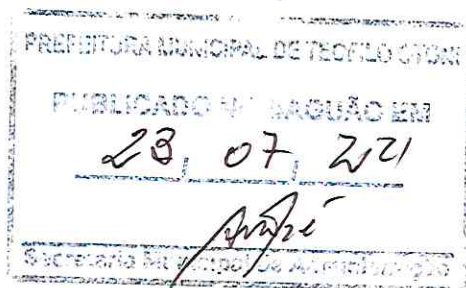 PREFEITURA MUNICIPAL DE TEOFILO OTONI
PUBLICADO NO SAGUÃO EM
23, 07, 2021
André
Secretaria Municipal de Administração